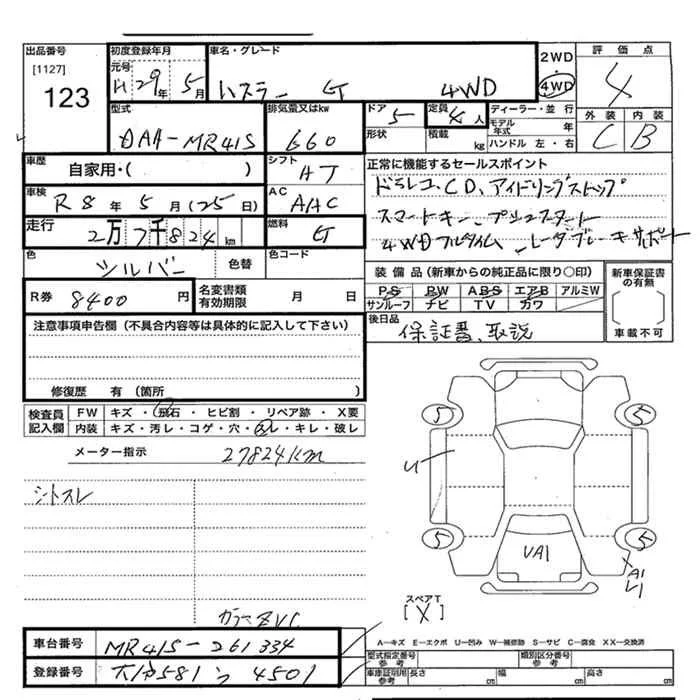 出品番号 初度登録年月 車名・グレード 2WD・4WD 評価点
[1127] 元号
123 H 29年 5月 ハスラー G 4WD 4
型式 排気量又はkw ドア 定員 ディーラー・並行 外装 内装
DAA-MR41S 660 5 4人 モデル年式 年 C B
形状 積載 kg ハンドル 左・右
車歴 シフト 正常に機能するセールスポイント
自家用・( ) AT ドラレコ、CD、アイドリングストップ
車検 AC
R8年 5月(25日) AAC スマートキー、プッシュスタート
走行 燃料
2万7千824km G 4WDフルタイム、レーダーブレーキサポート
色 色替 色コード
シルバー 装備品(新車からの純正品に限り○印) 新車保証書の有無
R券 8400円 名変書類有効期限 月 日 PS PW ABS エアB アルミW
サンルーフ ナビ TV カワ
注意事項申告欄(不具合内容等は具体的に記入して下さい) 後日品 [ ]
保証書、取説 車載不可
修復歴 有(箇所 )
検査員記入欄 FW キズ・飛石・ヒビ割・リペア跡・X要
内装 キズ・汚レ・コゲ・穴・スレ・キレ・破レ
メーター指示 27824km
シートスレ
5 5
U
5 5
UA1
A1
スペアT
[X]
A―キズ E―エクボ U―凹み W―補修跡 S―サビ C―腐食 XX―交換済
車台番号 MR41S-261334 型式指定番号 参考 類別区分番号 参考
登録番号 581 4501 車庫証明用 参考 長さ cm 幅 cm 高さ cm